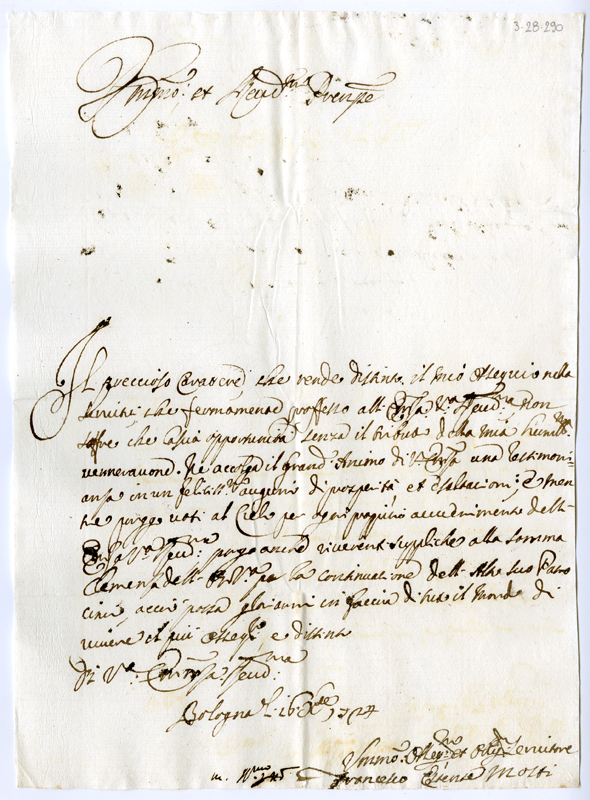 3-28-290
Em̃mo: et Reud:mo Prencipe
Il preccioso Carattere, che rende distinto il mio Ossequio nella
seruitù, che fermamente professo all' Em̃za Vra Reud:ma non
soffre, che lasci opportunità senza il tributo della mia humil:ma
venneratione. Ne accolga il Grand' Animo di V. Em̃za una testimoni=
anza in un feliciss:o augurio di prosperità, et esaltationi; E men
tre porgo voti al Cielo per ogni maggiore accrescimento dell'
Em̃za Vra Reud:ma porgo ancora riverenti suppliche alla somma
Clemenza dell' Em̃ Va per la continuatione dell' Alto suo Patro
cinio, acciò possa gloriarmi in faccia di tutto il Mondo di
vivere il più osseq:o e distinto
Di Va Em̃za Reud:ma
Bologna li 16 Xbre 1724
Um̃mo: Osseq:mo et Oblig:mo Servitore
Francesco Estense Mosti